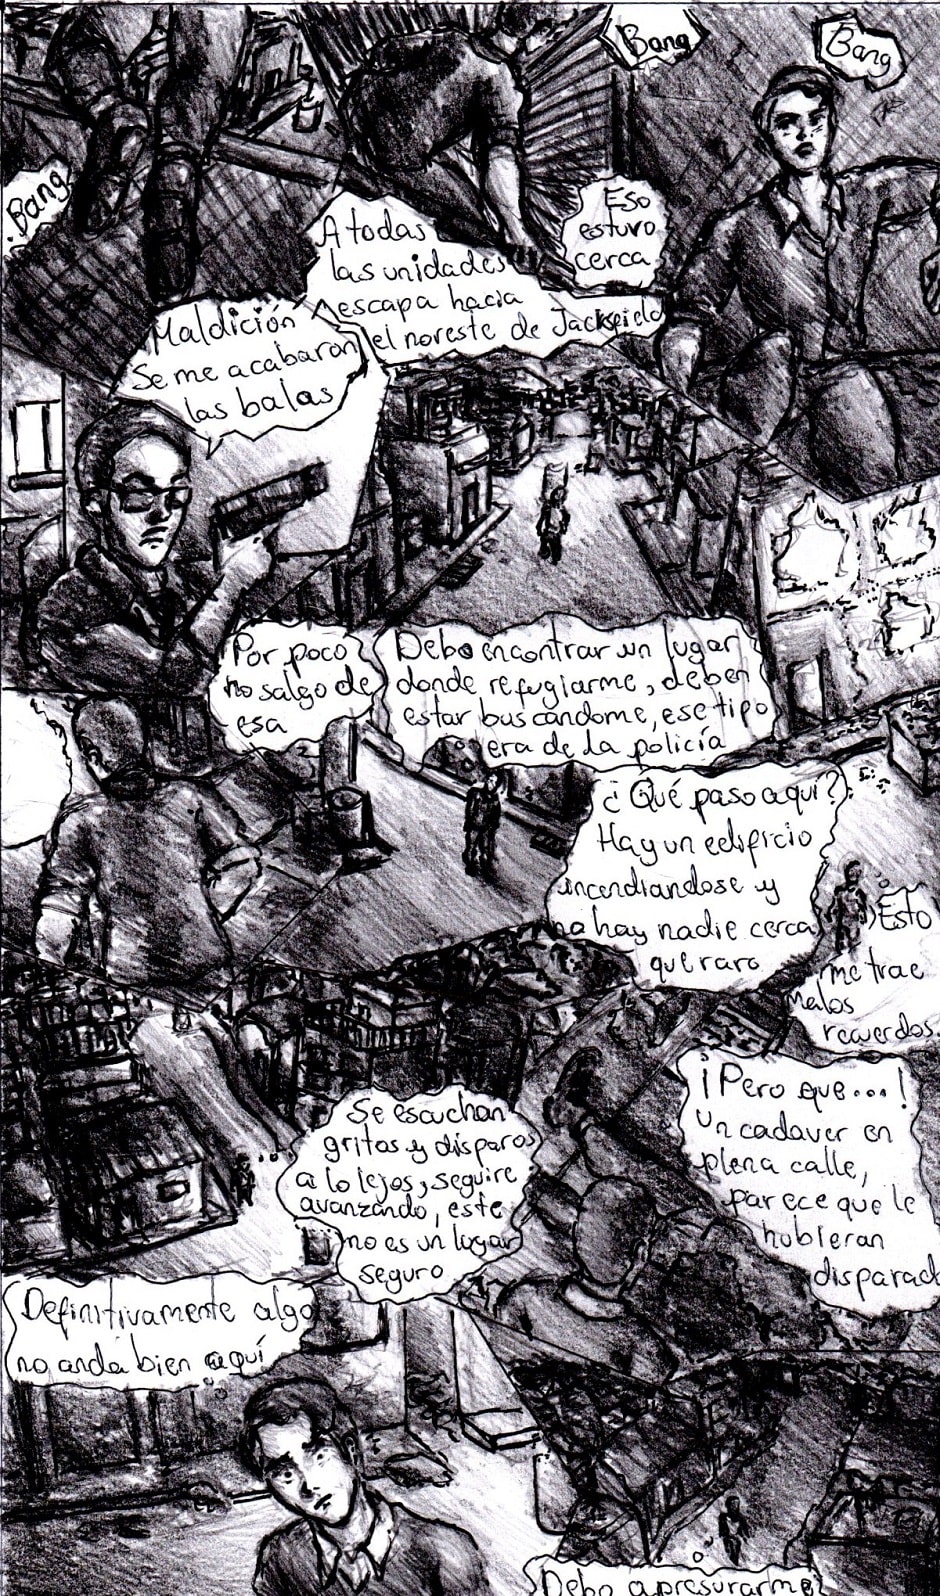 Bang
Bang
Bang
Eso
estuvo
cerca
A todas
las unidades
escapa hacia
el noreste de Jacksfield
Maldición
Se me acabaron
las balas
Por poco
no salgo de
esa
Debo encontrar un lugar
donde refugiarme, deben
estar buscandome, ese tipo
era de la policía
¿Qué paso aquí?
Hay un edificio
incendiandose y
no hay nadie cerca
que raro
Esto
me trae
malos
recuerdos.
¡Pero que...!
Un cadaver en
plena calle,
parece que le
hubieran
disparad
Se escuchan
gritos y disparos
a lo lejos, seguire
avanzando, este
no es un lugar
seguro
Definitivamente algo
no anda bien aquí
Debo apresurarme